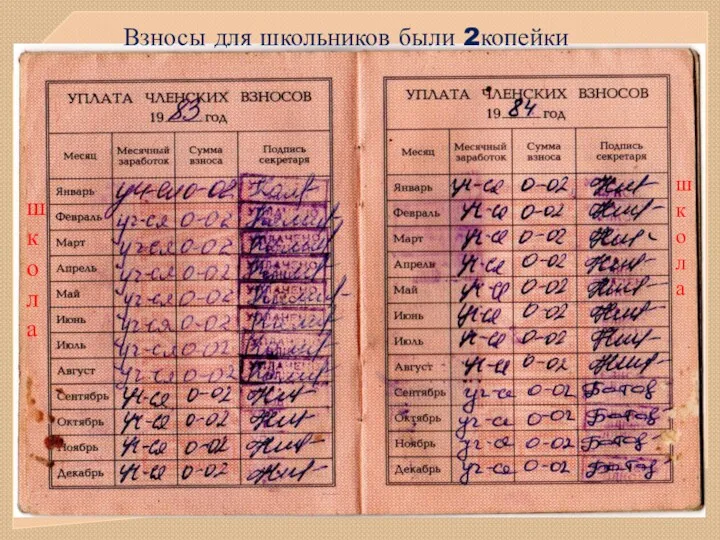 Взносы для школьников были 2копейки
школа
УПЛАТА ЧЛЕНСКИХ ВЗНОСОВ
1983 год
Месяц Месячный заработок Сумма взноса Подпись секретаря
Январь уч-ся 0-02
Февраль уч-ся 0-02
Март уч-ся 0-02 УПЛАЧЕНО
Апрель уч-ся 0-02 УПЛАЧЕНО
Май уч-ся 0-02 УПЛАЧЕНО
Июнь уч-ся 0-02 УПЛАЧЕНО
Июль уч-ся 0-02 УПЛАЧЕНО
Август уч-ся 0-02 УПЛАЧЕНО
Сентябрь уч-ся 0-02
Октябрь уч-ся 0-02
Ноябрь уч-ся 0-02
Декабрь уч-ся 0-02
УПЛАТА ЧЛЕНСКИХ ВЗНОСОВ
1984 год
Месяц Месячный заработок Сумма взноса Подпись секретаря
Январь уч-ся 0-02
Февраль уч-ся 0-02
Март уч-ся 0-02
Апрель уч-ся 0-02
Май уч-ся 0-02
Июнь уч-ся 0-02
Июль уч-ся 0-02
Август уч-ся 0-02
Сентябрь уч-ся 0-02
Октябрь уч-ся 0-02
Ноябрь уч-ся 0-02
Декабрь уч-ся 0-02
школа